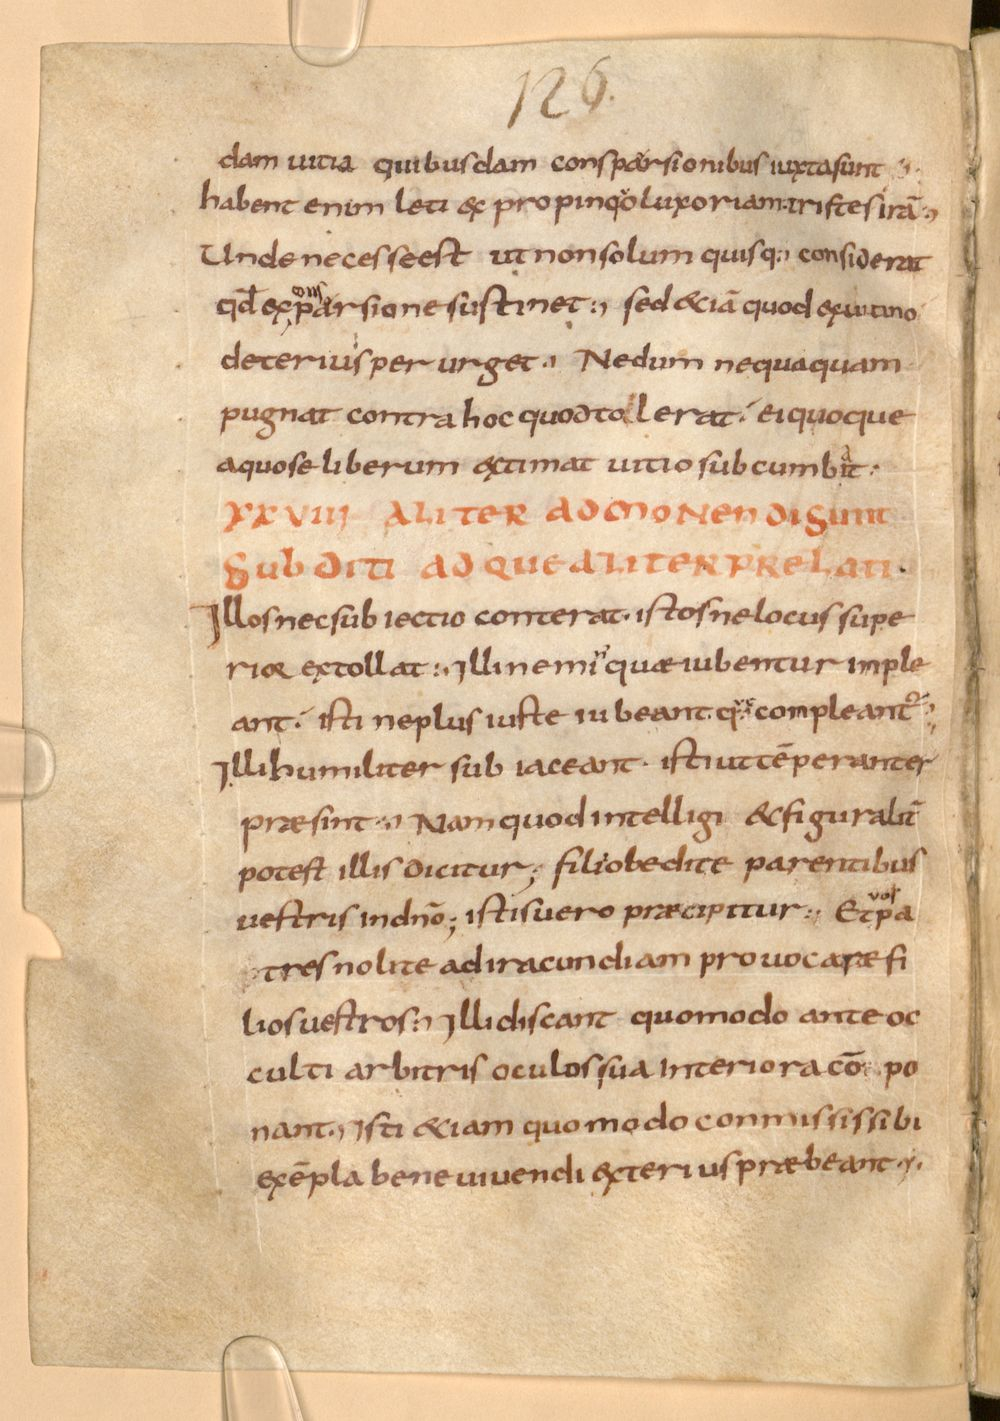 126.
dam uitia quibusdam consparsionibus iuxta sunt
habent enim leti ex propinqǒ luxoriam. tristes irā:,
Unde necesse est ut non solum quisq:, considerat
qđ ex consparsione sustinet:, sed &iā quod ex uitino
deterius perurget:, Nedum nequaquam
pugnat contra hoc quod tollerat; ei quoque
a quo se liberum extimat uitio subcumbat:
XXVIIII ALITER ADMONENDI SUNT
SUBDITI ADQUE ALITER PRELATI.
Illos nec subiectio conterat. istos ne locus supe
rior extollat:, illi ne min̄ quae iubentur imple
ant; isti ne plus iuste iubeant. quā compleant᷑:,
Illi humiliter subiaceant. isti ut tēperanter
praesint:, Nam quod intelligi & figuralit̄
potest illis dicitur; filii obedite parentibus
uestris in dnō; istis uero praecipitur:, Et vos pa
tres nolite ad iracundiam prouocare fi
lios uestros:, Illi discant quomodo ante oc
culti arbitris oculos sua interiora cō po
nant:, Isti &iam quomodo conmissis sibi
exēpla bene uiuendi exterius praebeant.,.